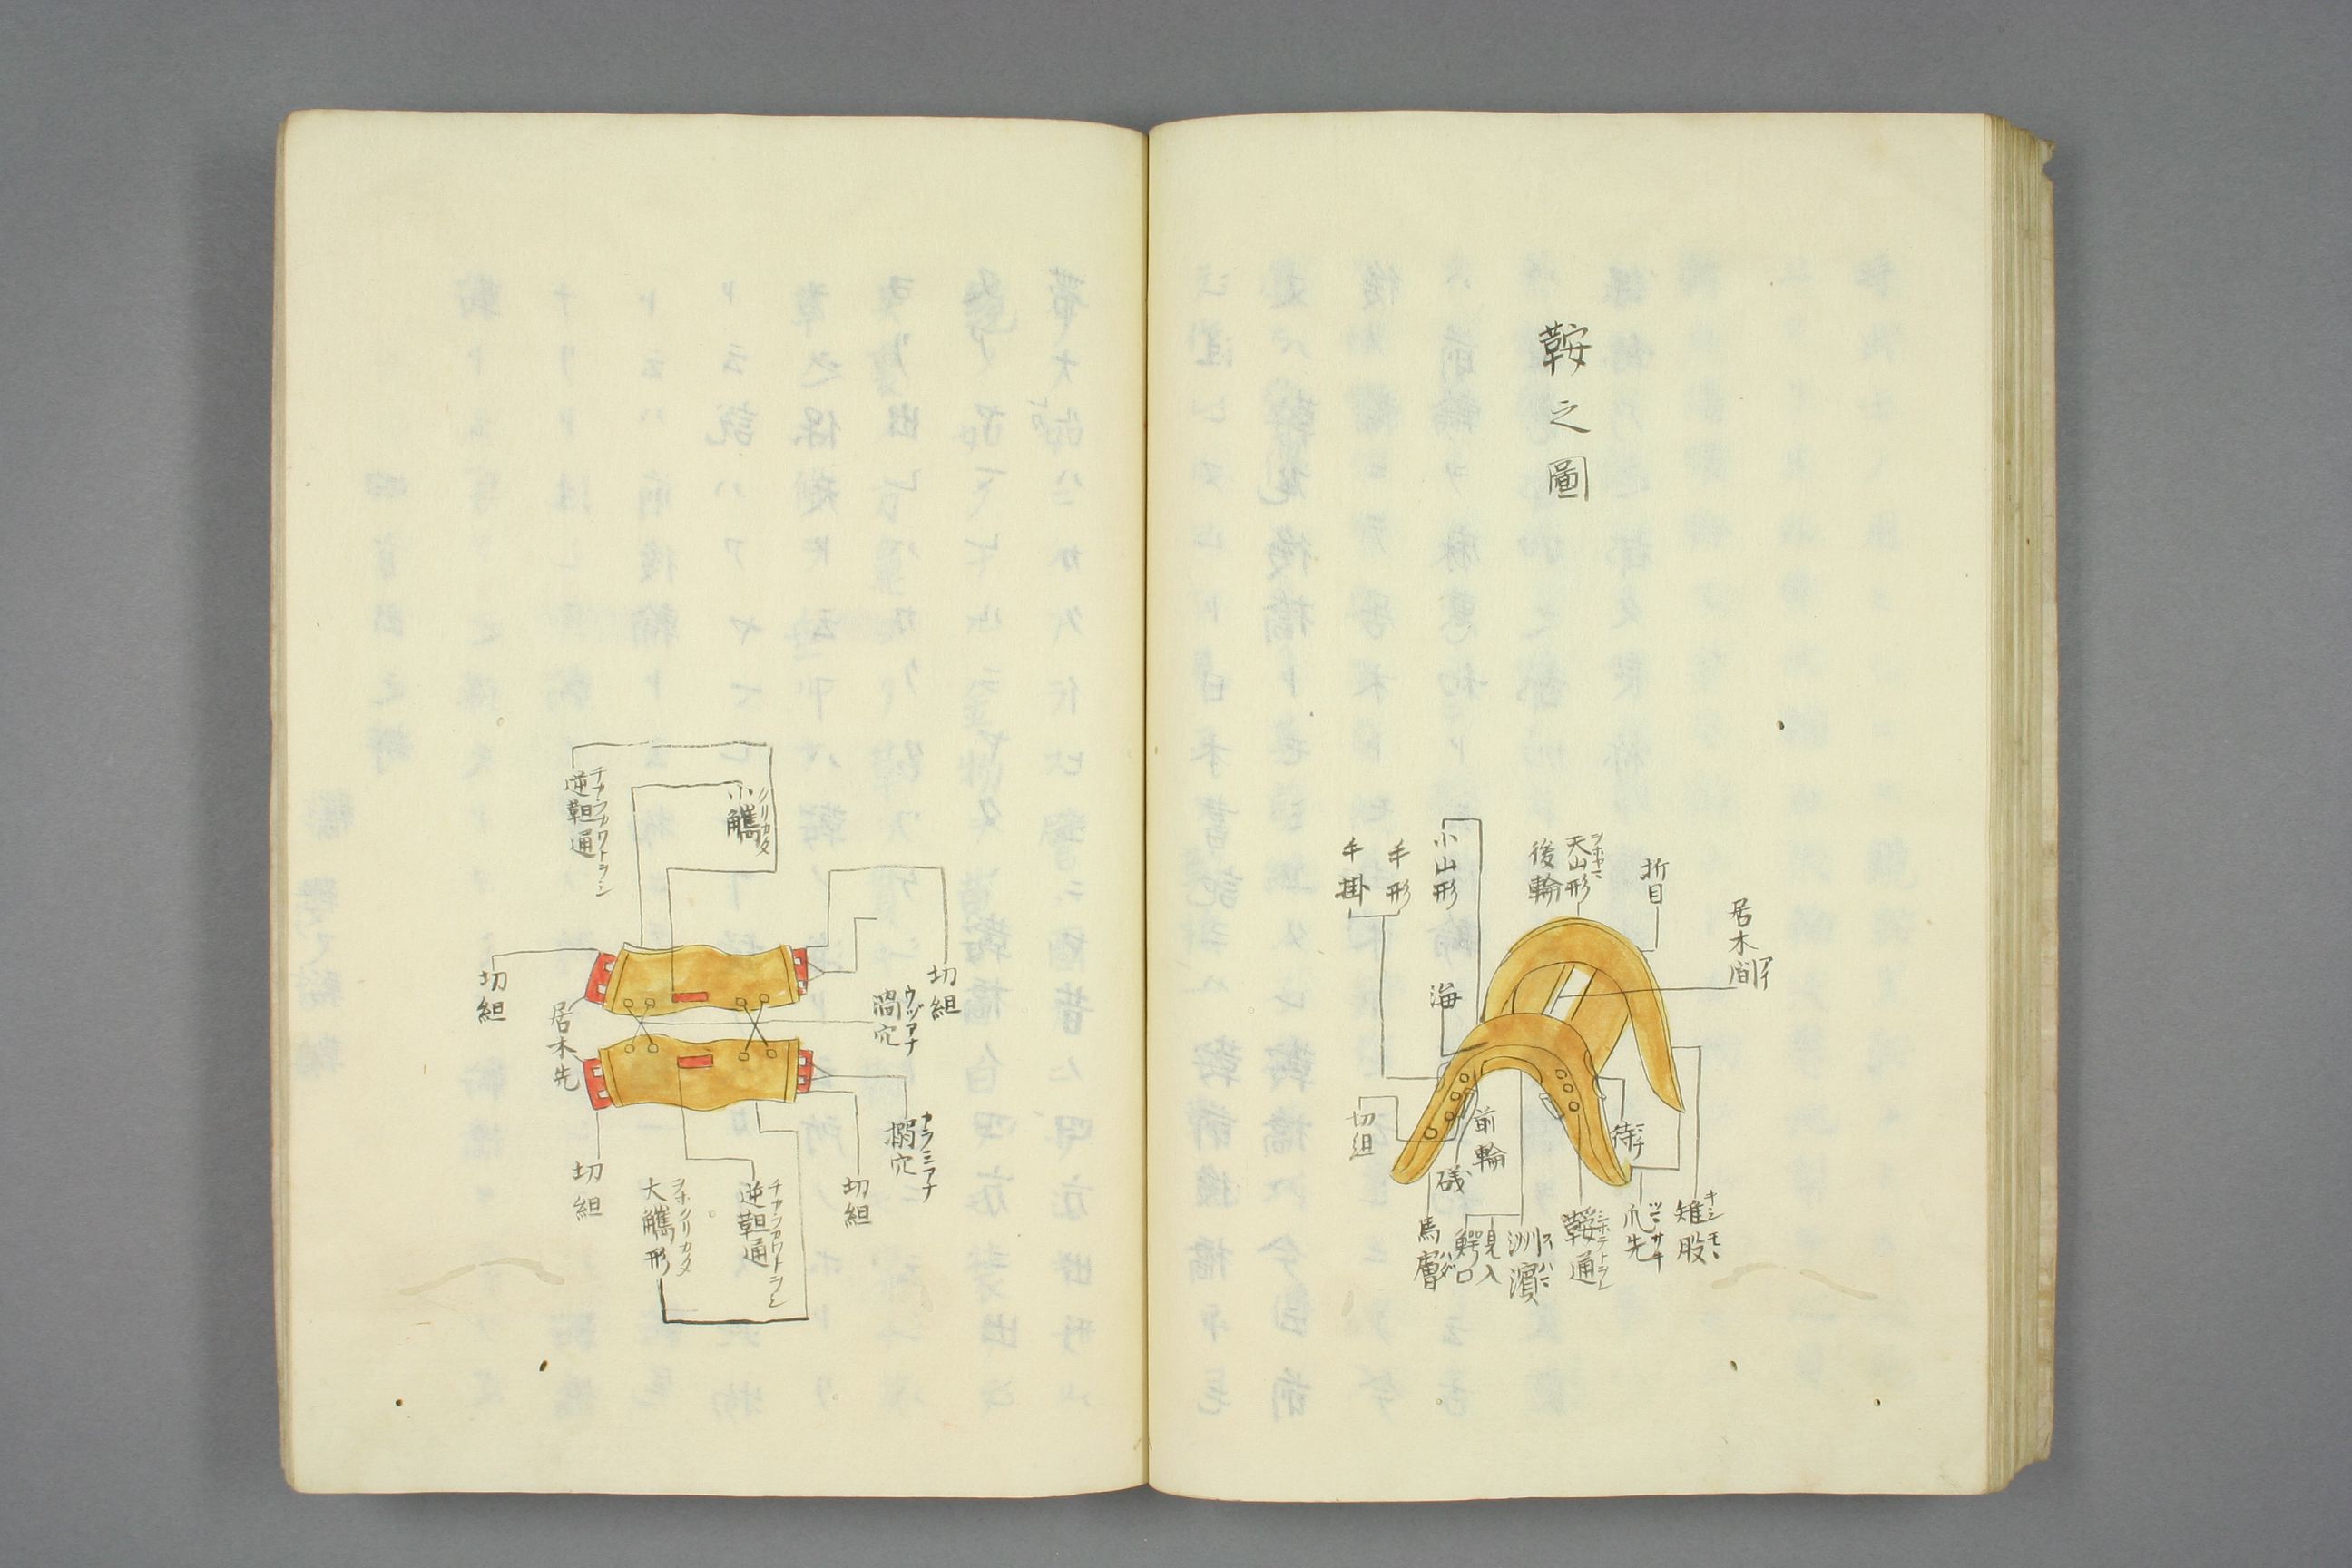 鞍之圖
居木間 アイ
折目
大山形 ヲホヤマ
後輪
小山形
手形
手掛
海
切組
前輪
磯
待
雉股 キジモヽ
爪先 ツマサキ
鞍通 シホデトヲシ
洲濱 スハマ
見入
鰐口
馬膚 ハダ
小觿 クリカタ
逆靼通 チカラカワトヲシ
切組
渦穴 ウヅアナ
切組
居木先
搦穴 カラミアナ
切組
逆靼通 チカラカワトヲシ
大觿形 ヲホクリカタ
切組